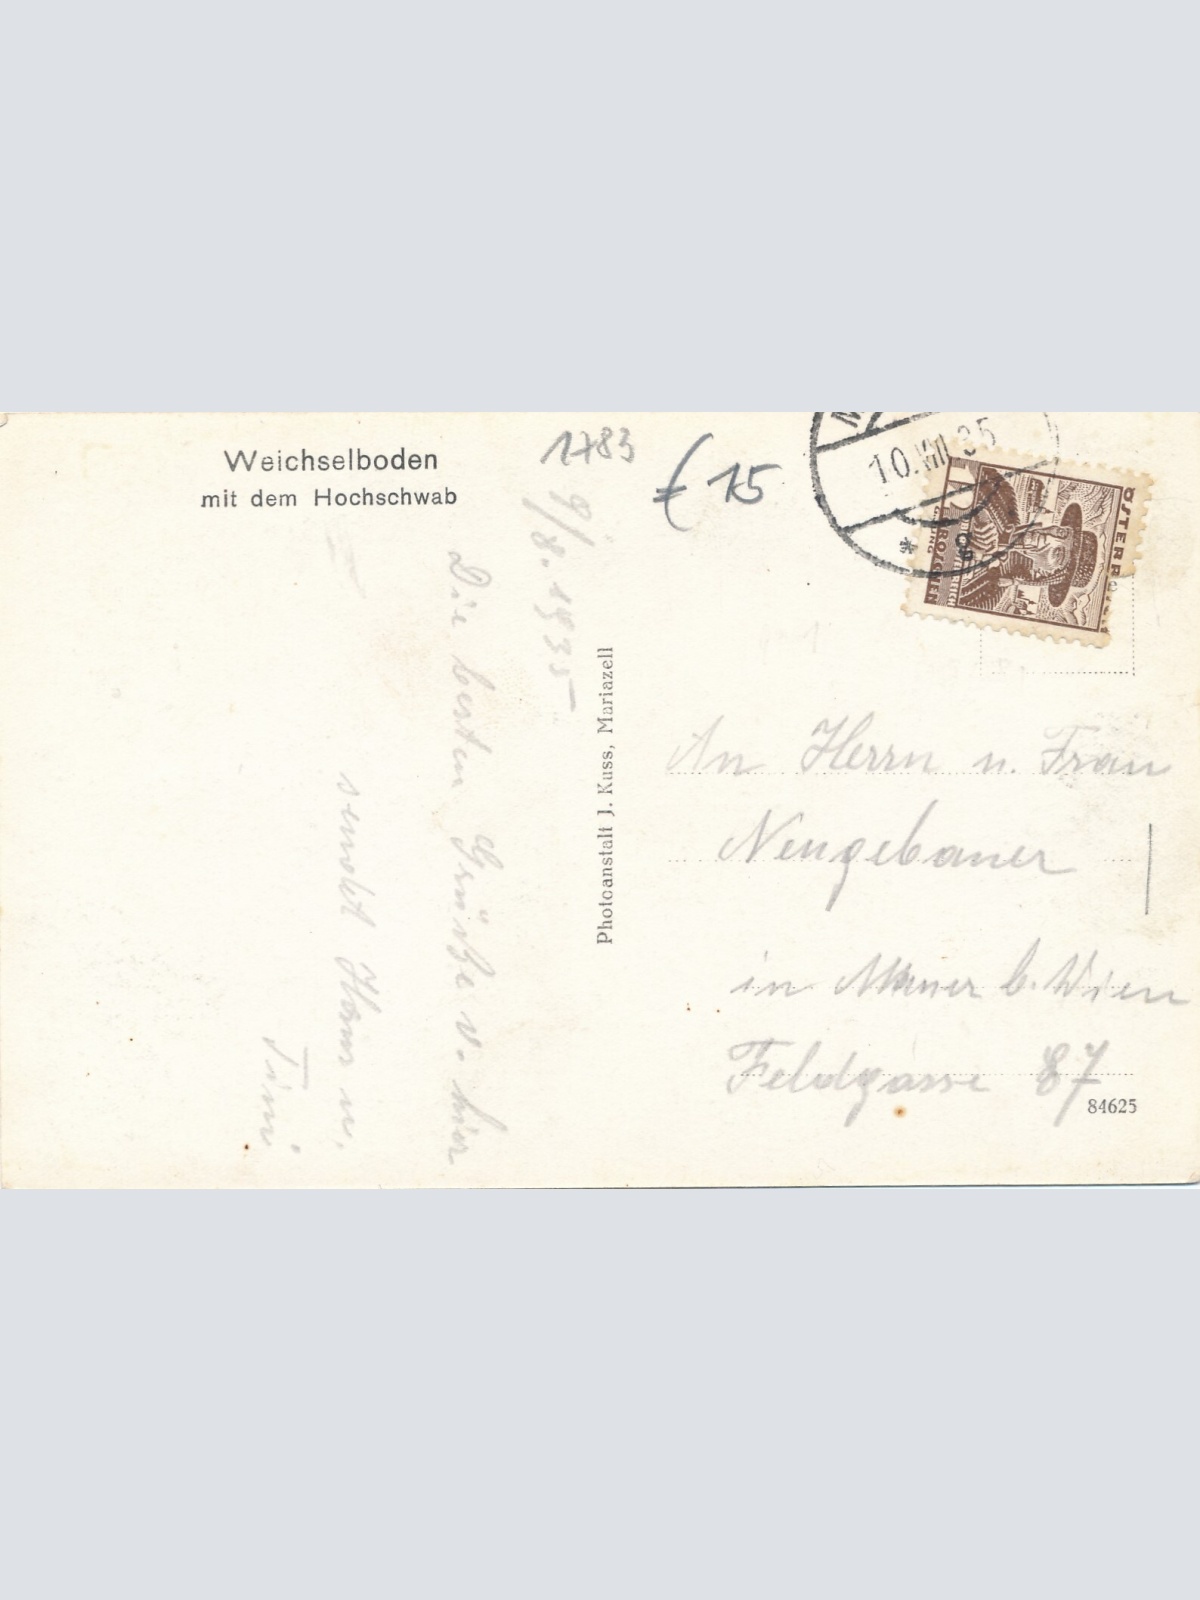 Weichselboden
mit dem Hochschwab
1783
€ 15
10.VIII.35
* 8
ÖSTERR
9/8. 1935
Die besten Grüße v. hier
sendet Hans u.
Tini
Photoanstalt J. Kuss, Mariazell
An Herrn u. Frau
Neugebauer
in Mauer b. Wien
Feldgasse 87
84625